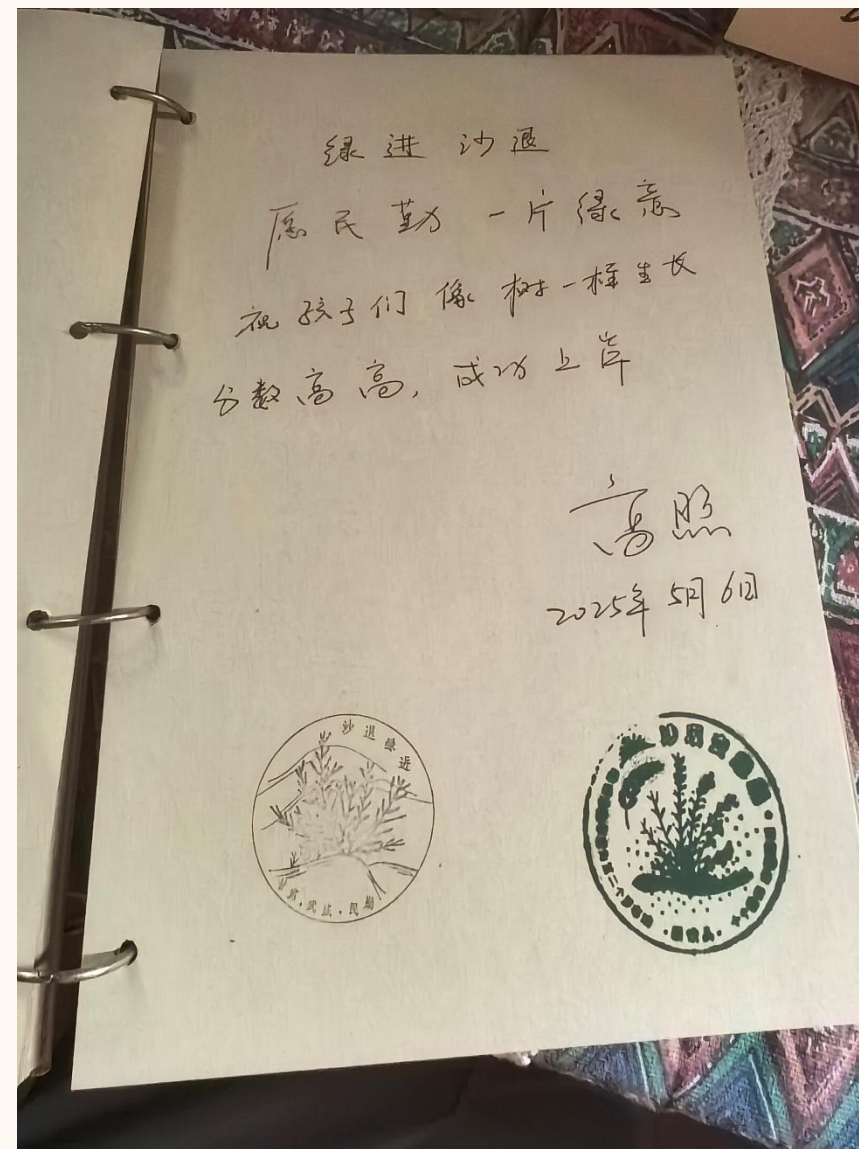 绿进沙退
愿民勤一片绿意
祝孩子们像树一样生长
分数高高，成功上岸
高照
2025年5月6日
沙退绿进
甘肃·武威·民勤